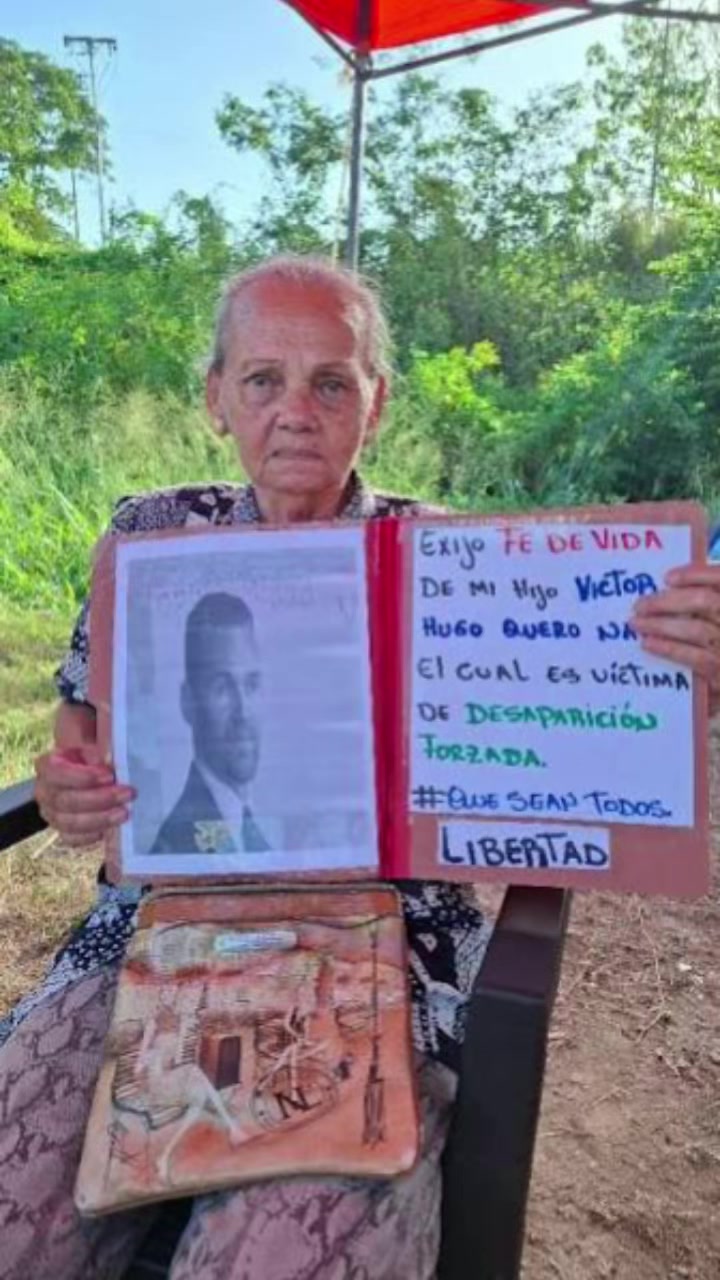 Exijo FE DE VIDA
DE MI Hijo VICTOR
HUGO QUERO NA
El CUAL ES VÍCTIMA
DE DESAPARICIÓN
FORZADA.
#QUE SEAN TODOS.
LIBERTAD